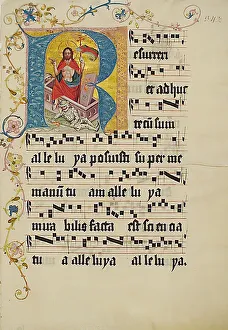 R esurrexi
et ad huc
tecum sum
al le lu ya posuisti su per me
manum tu am alle lu ya
mira bilis facta est sci en cia
tu a alleluya al le lu ya.